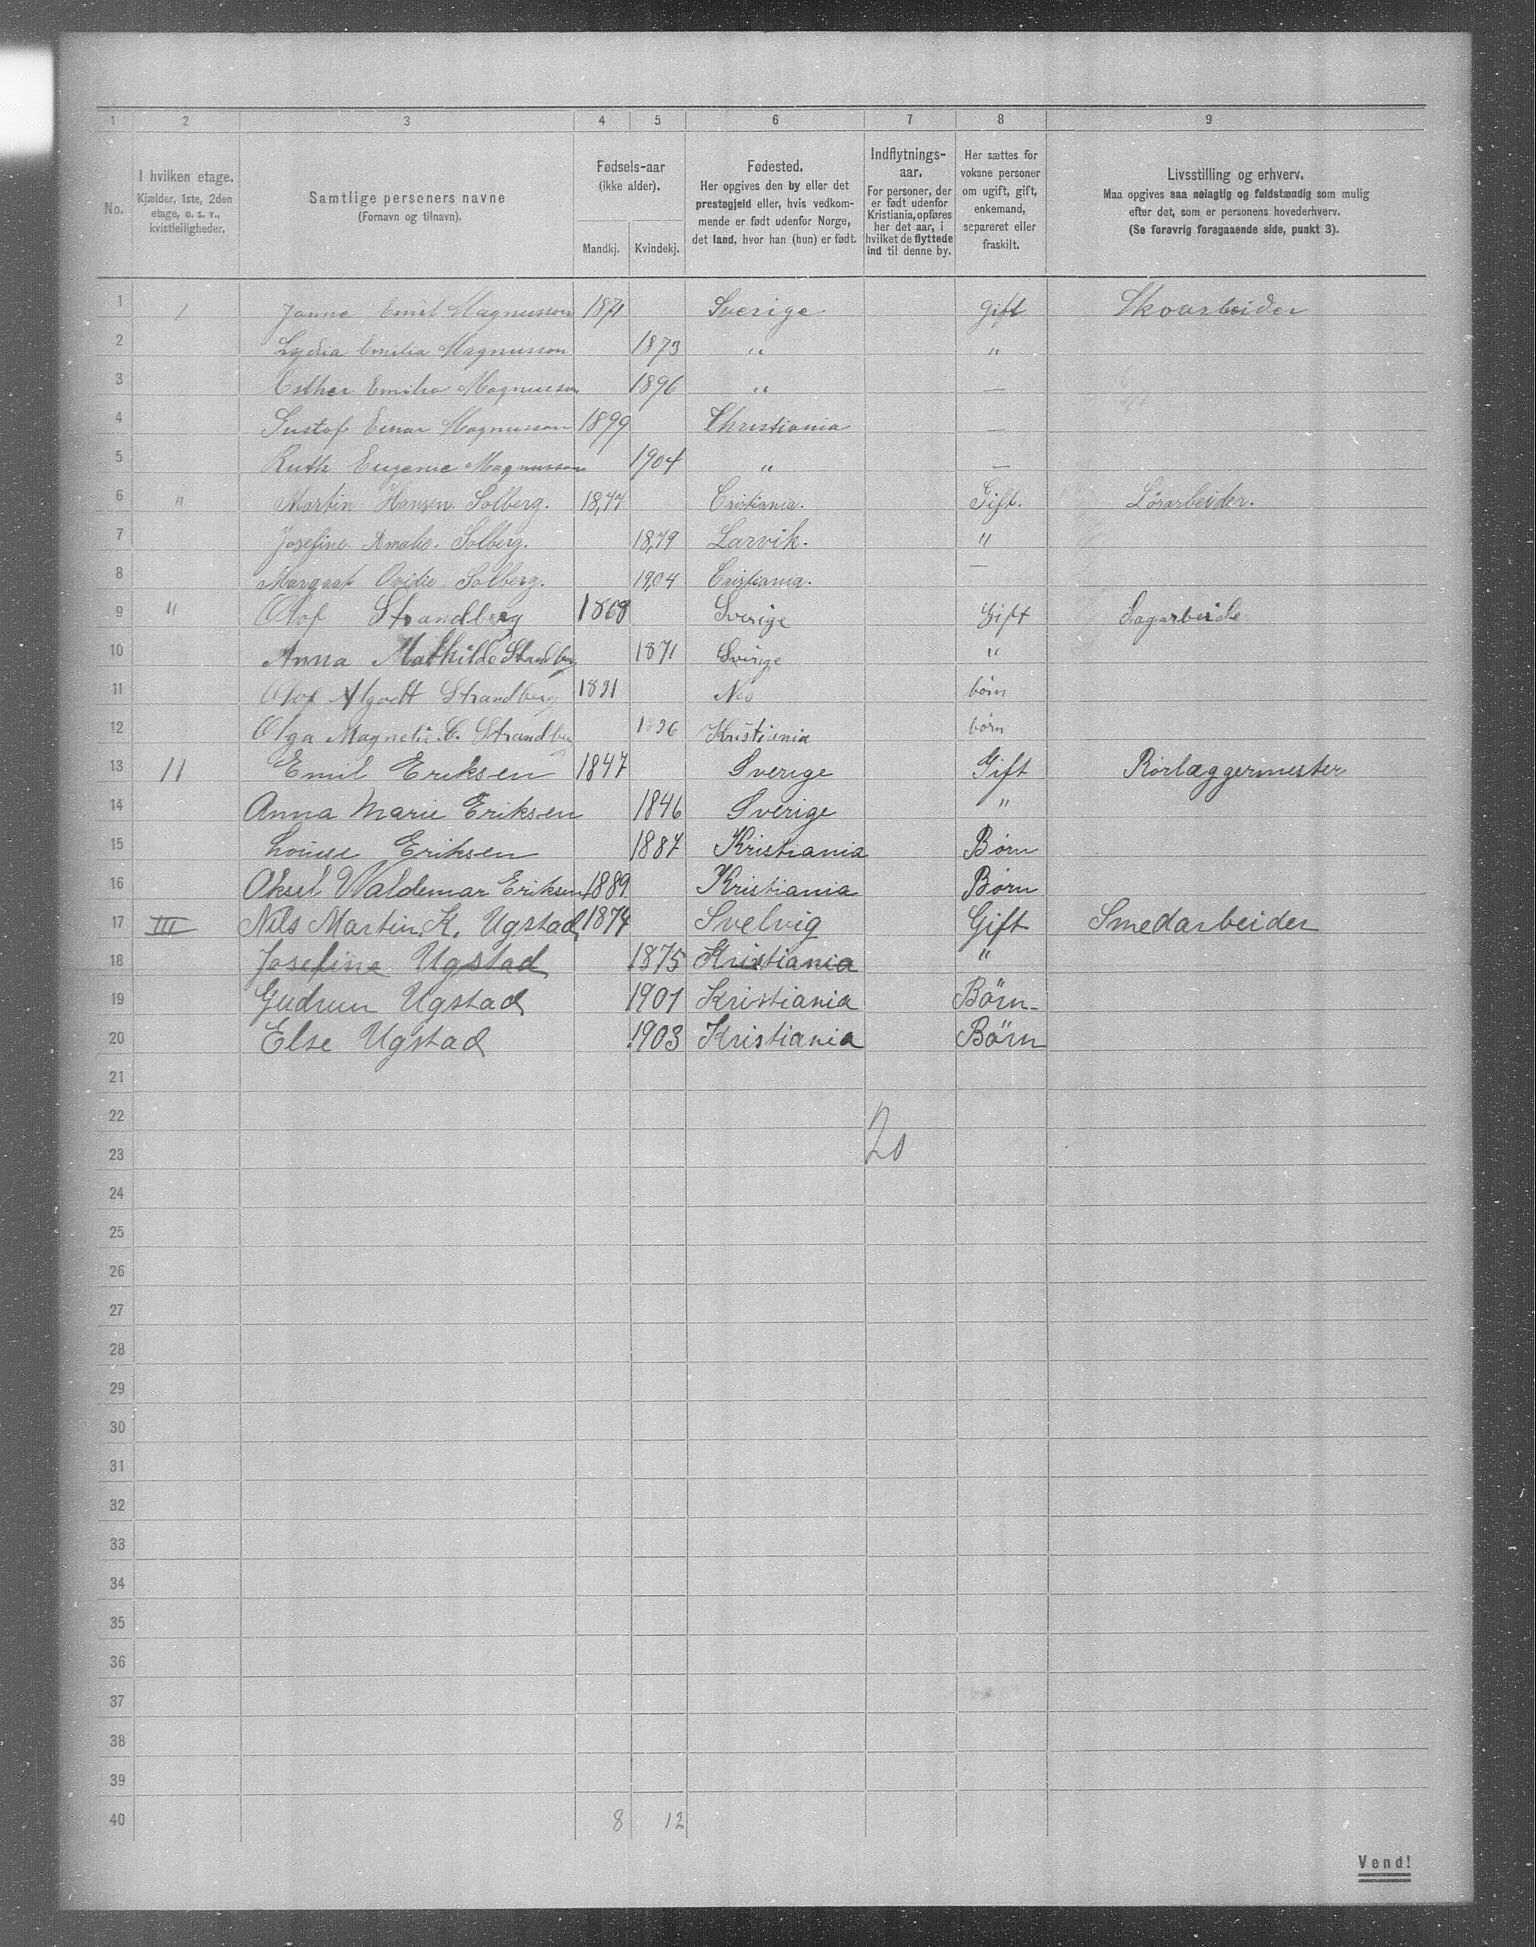 1 2 3 4 5 6 7 8 9
No.
I hvilken etage.
Kjælder, 1ste, 2den
etage, o. s. v.,
kvistleiligheder.
Samtlige personers navne
(Fornavn og tilnavn).
Fødsels-aar
(ikke alder).
Mandkj. Kvindekj.
Fødested.
Her opgives den by eller det
prestegjeld eller, hvis vedkom-
mende er født udenfor Norge,
det land, hvor han (hun) er født.
Indflytnings-
aar.
For personer, der
er født udenfor
Kristiania, opføres
her det aar, i
hvilket de flyttede
ind til denne by.
Her sættes for
voksne personer
om ugift, gift,
enkemand,
separeret eller
fraskilt.
Livsstilling og erhverv.
Maa opgives saa nøiagtig og fuldstændig som mulig
efter det, som er personens hovederhverv.
(Se forøvrig foregaaende side, punkt 3).
1 1 Janne Emil Magnusson 1871 Sverige Gift Skoarbeider
2 Lydia Emilia Magnusson 1873 " "
3 Esther Emilia Magnusson 1896 " —
4 Gustaf Einar Magnusson 1899 Christiania —
5 Ruth Eugenie Magnusson 1904 " —
6 " Martin Hansen Solberg. 1877 Cristiania. Gift. Løsarbeider.
7 Josefine Amalie. Solberg. 1879 Larvik. "
8 Margrat Ovidie Solberg. 1904 Cristiania. —
9 " Olof Strandberg 1868 Sverige Gift Sagarbeide
10 Anna Mathilde Strandberg 1871 Sverige "
11 Olof Algodt Strandberg 1891 Nes børn
12 Olga Magnelie C. Strandberg 1896 Kristiania børn
13 11 Emil Eriksen 1847 Sverige Gift Rørlæggermester
14 Anna Marie Eriksen 1846 Sverige "
15 Louise Eriksen 1887 Kristiania Børn
16 Aksel Waldemar Eriksen 1889 Kristiania Børn
17 III Nils Martin K. Ugstad 1874 Svelvig Gift Smedarbeider
18 Josefine Ugstad 1875 Kristiania "
19 Gudrun Ugstad 1901 Kristiania Børn
20 Else Ugstad 1903 Kristiania Børn
21
22
20
23
24
25
26
27
28
29
30
31
32
33
34
35
36
37
38
39
40 8 12
Vend!